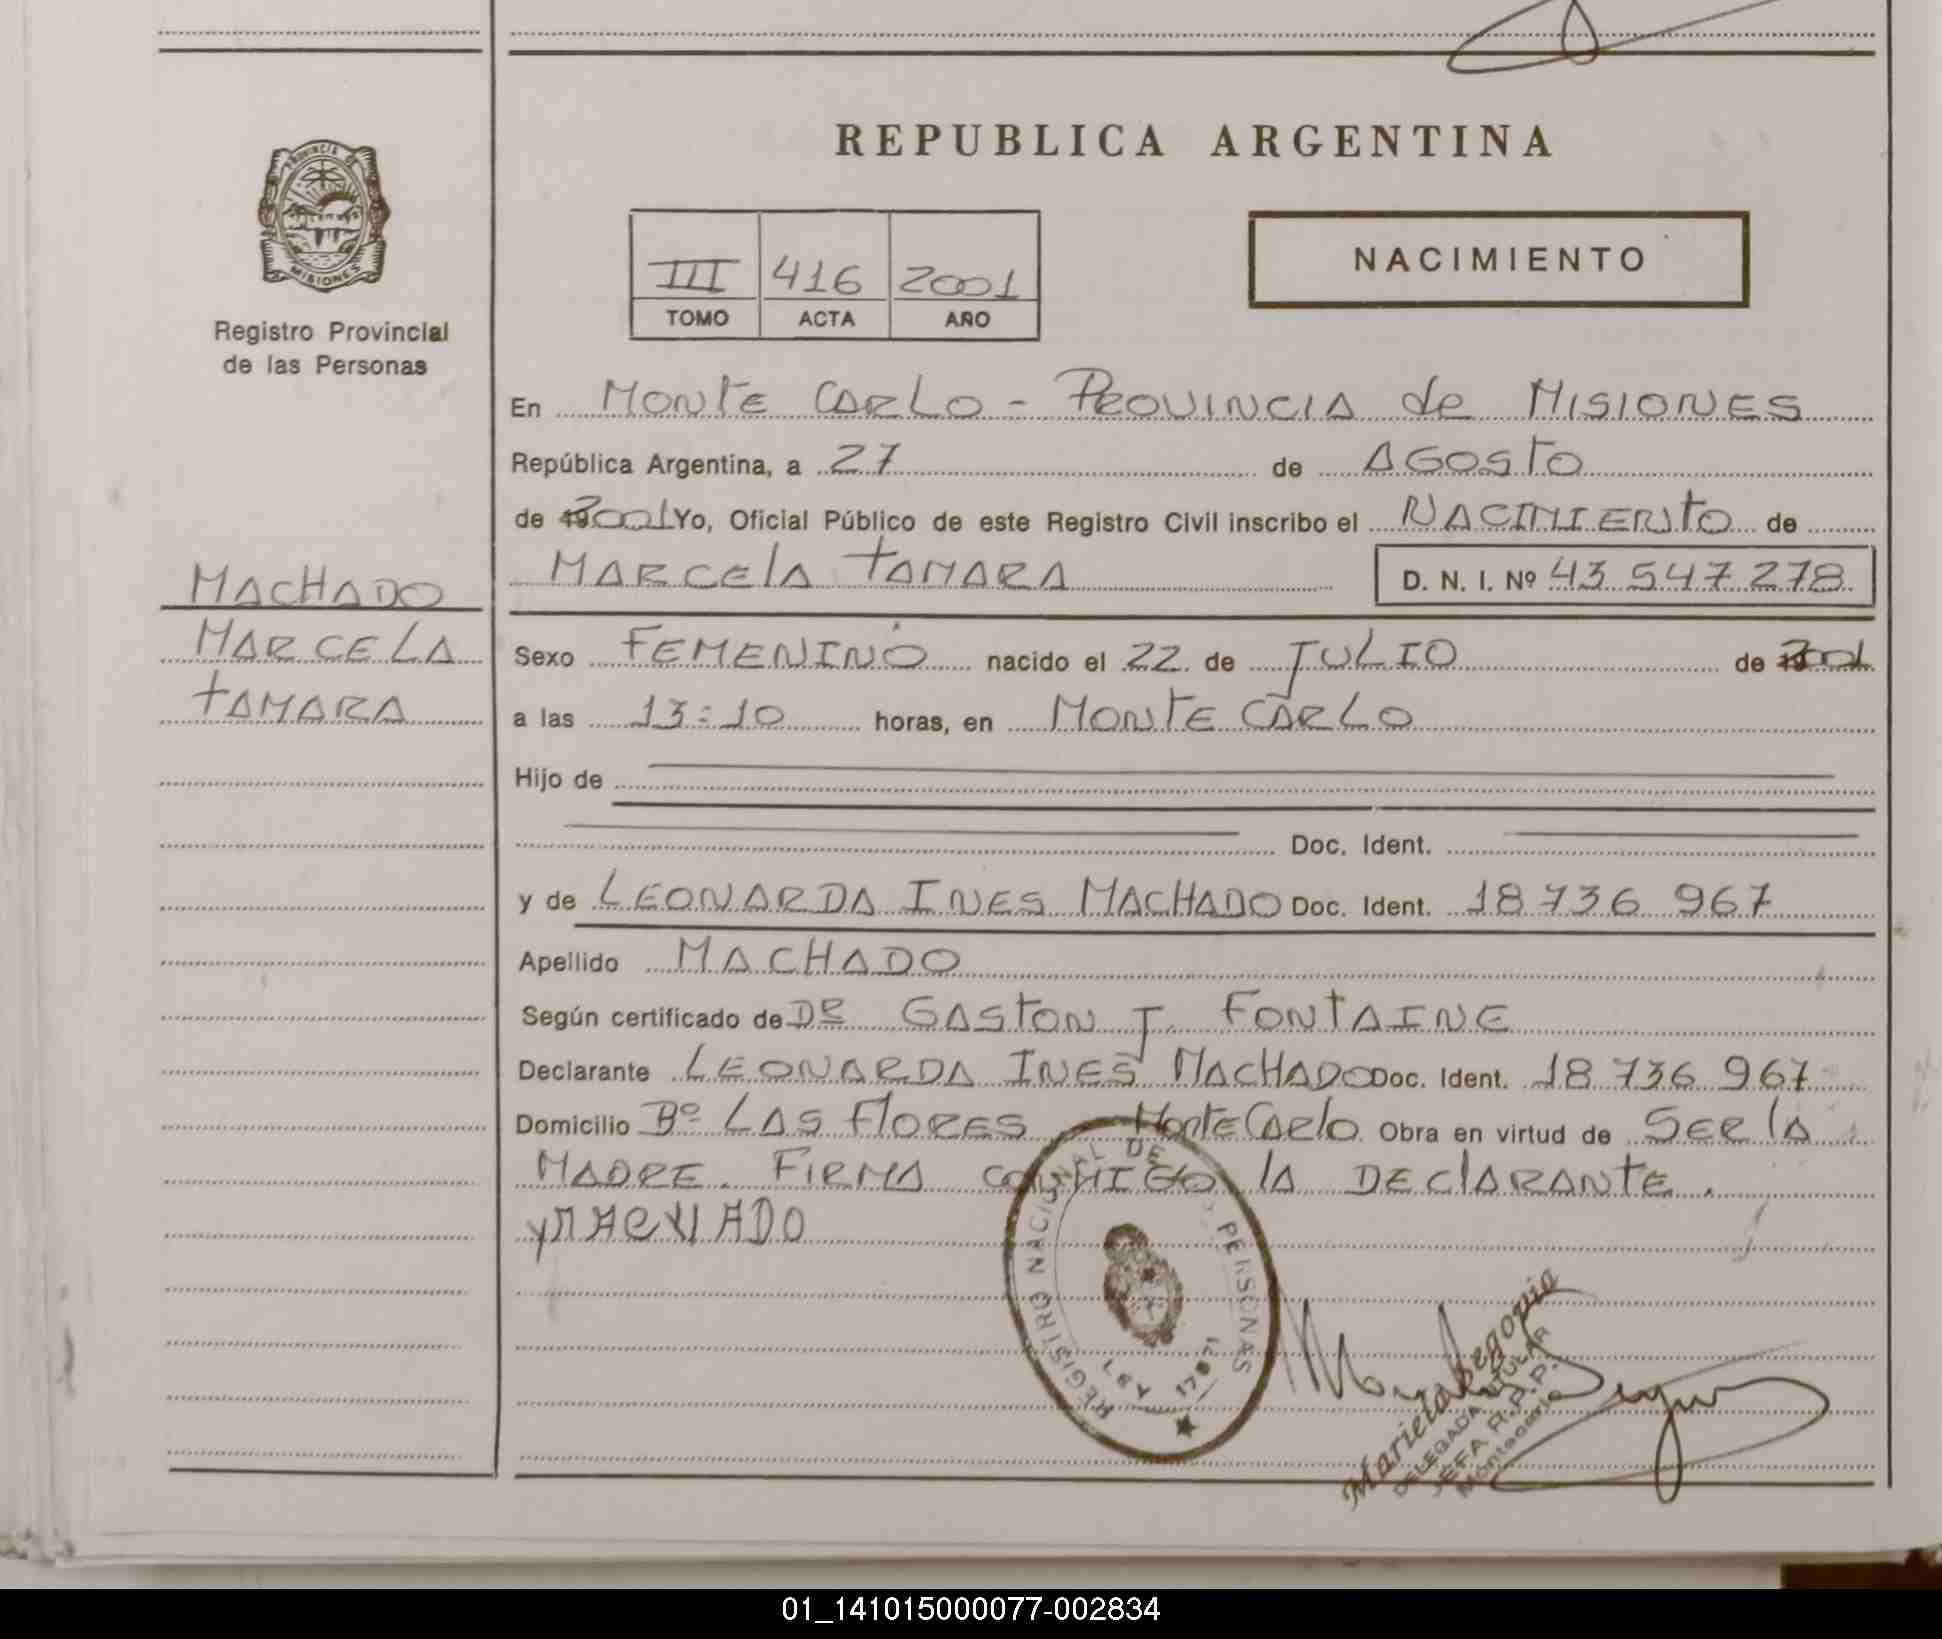 REPUBLICA ARGENTINA
PROVINCIA DE
MISIONES
Registro Provincial
de las Personas
III 416 2001
TOMO ACTA AÑO
NACIMIENTO
En MONTE CARLO - PROVINCIA de MISIONES
República Argentina, a 27 de AGOSTO
de 2001 Yo, Oficial Público de este Registro Civil inscribo el NACIMIENTO de
MARCELA TAMARA D. N. I. Nº 43 547 278
MACHADO
MARCELA
TAMARA
Sexo FEMENINO nacido el 22 de JULIO de 2001
a las 13:10 horas, en MONTE CARLO
Hijo de
Doc. Ident.
y de LEONARDA INES MACHADO Doc. Ident. 18 736 967
Apellido MACHADO
Según certificado de DR GASTON J. FONTAINE
Declarante LEONARDA INES MACHADO Doc. Ident. 18 736 967
Domicilio Bº LAS FLORES Monte Carlo Obra en virtud de SER LA
MADRE. FIRMA CONMIGO LA DECLARANTE.
MACHADO
REGISTRO NACIONAL DE PERSONAS
LEY 17671
Mariela Segovia
DELEGADA TITULAR
JEFA R.P.P.
Montecarlo
01_141015000077-002834